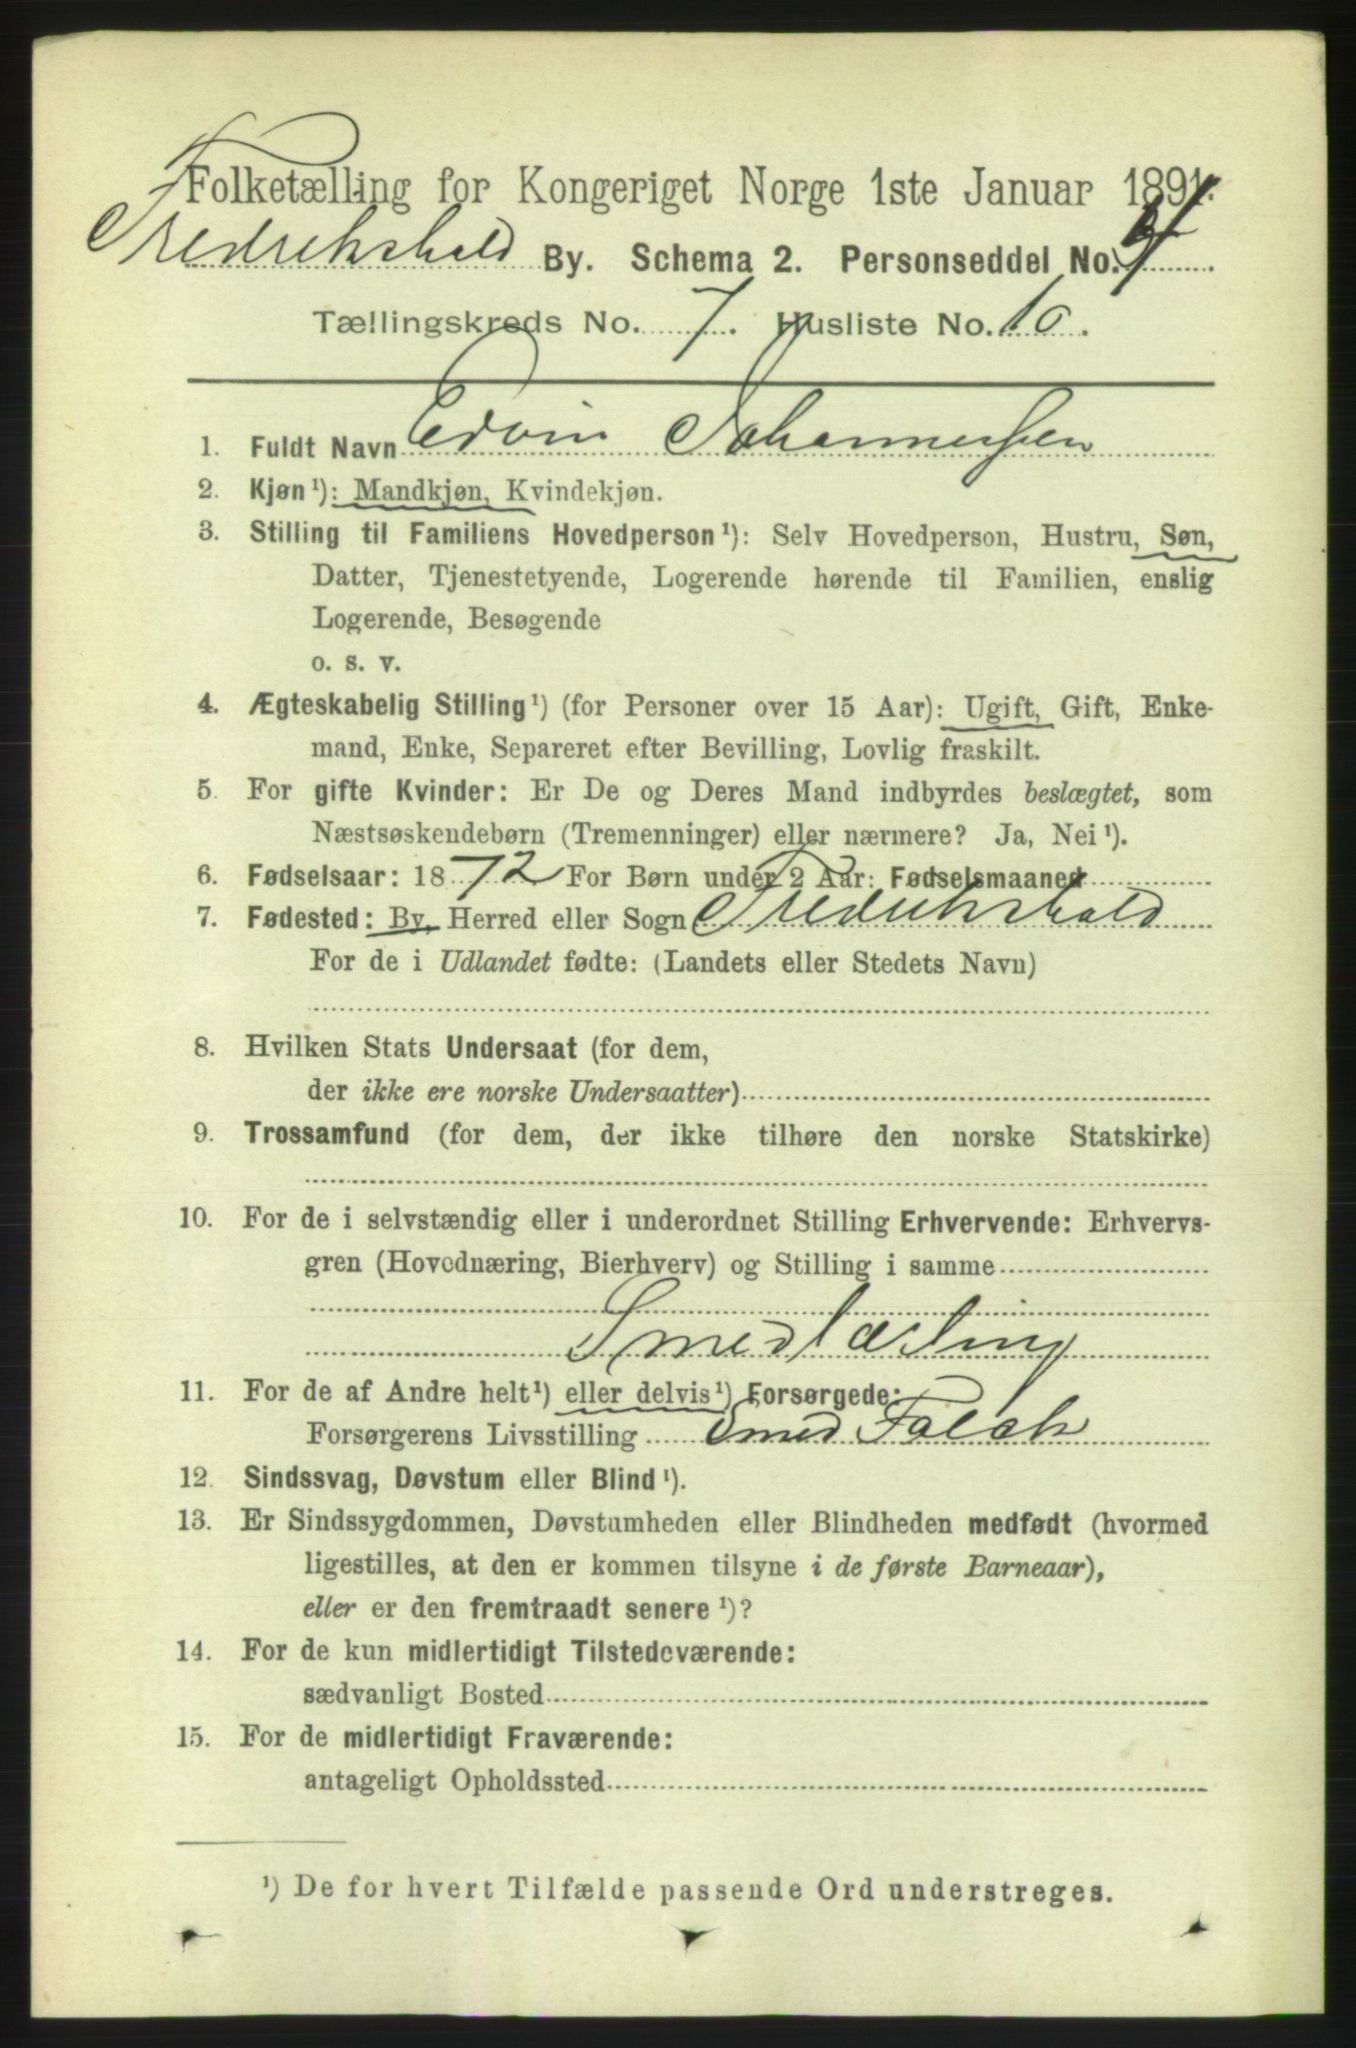 Folketælling for Kongeriget Norge 1ste Januar 1891.
Fredrikshald By. Schema 2. Personseddel No.
Tællingskreds No. 7. Husliste No. 10.
1. Fuldt Navn Edvin Johannessen
2. Kjøn¹): Mandkjøn, Kvindekjøn.
3. Stilling til Familiens Hovedperson¹): Selv Hovedperson, Hustru, Søn,
Datter, Tjenestetyende, Logerende hørende til Familien, enslig
Logerende, Besøgende
o. s. v.
4. Ægteskabelig Stilling¹) (for Personer over 15 Aar): Ugift, Gift, Enke-
mand, Enke, Separeret efter Bevilling, Lovlig fraskilt.
5. For gifte Kvinder: Er De og Deres Mand indbyrdes beslægtet, som
Næstsøskendebørn (Tremenninger) eller nærmere? Ja, Nei¹).
6. Fødselsaar: 1872 For Børn under 2 Aar: Fødselsmaaned
7. Fødested: By, Herred eller Sogn Fredrikshald
For de i Udlandet fødte: (Landets eller Stedets Navn)
8. Hvilken Stats Undersaat (for dem,
der ikke ere norske Undersaatter)
9. Trossamfund (for dem, der ikke tilhøre den norske Statskirke)
10. For de i selvstændig eller i underordnet Stilling Erhvervende: Erhvervs-
gren (Hovednæring, Bierhverv) og Stilling i samme
Smedlærling
11. For de af Andre helt¹) eller delvis¹) Forsørgede:
Forsørgerens Livsstilling Smed Falch
12. Sindssvag, Døvstum eller Blind¹).
13. Er Sindssygdommen, Døvstumheden eller Blindheden medfødt (hvormed
ligestilles, at den er kommen tilsyne i de første Barneaar),
eller er den fremtraadt senere¹)?
14. For de kun midlertidigt Tilstedeværende:
sædvanligt Bosted
15. For de midlertidigt Fraværende:
antageligt Opholdssted
¹) De for hvert Tilfælde passende Ord understreges.